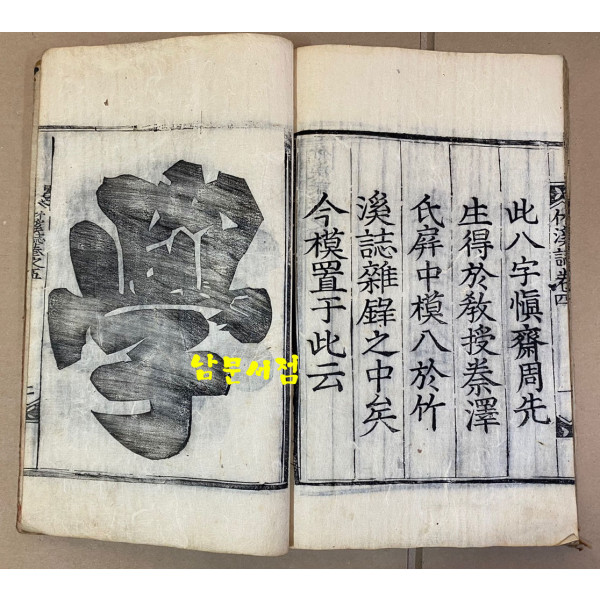 竹溪誌卷四
此八字愼齋周先
生得於敎授澤
氏屛中模入於竹
溪誌雜錄之中矣
今模置于此云
學
남문서점
竹溪誌卷之五